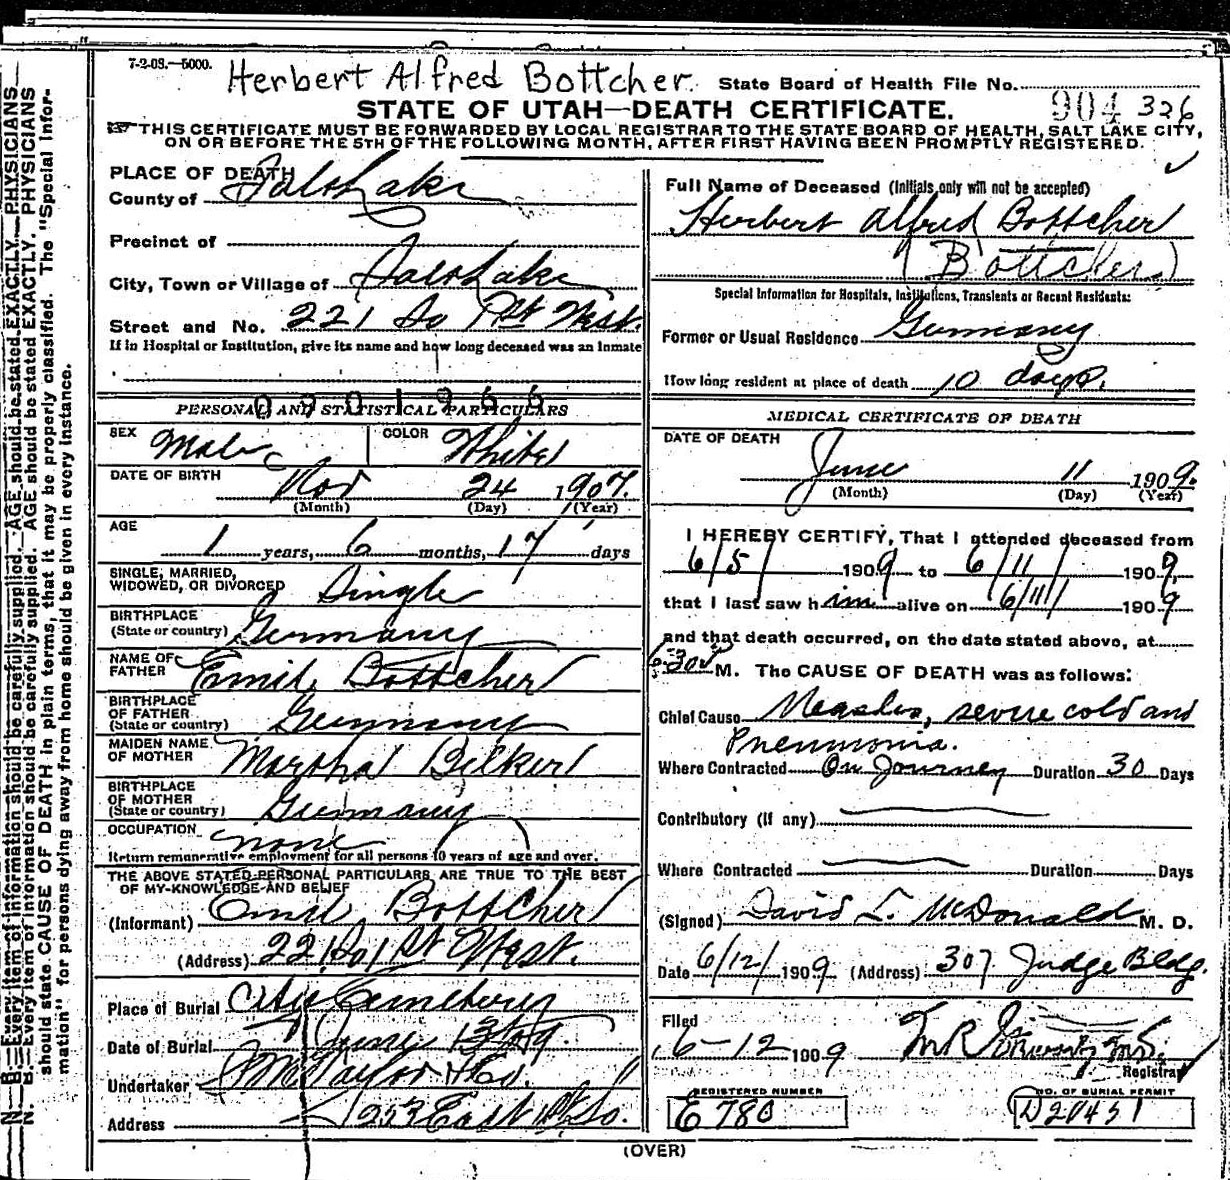 7-2-08.—5000.
Herbert Alfred Bottcher
State Board of Health File No.
904 326
STATE OF UTAH—DEATH CERTIFICATE.
THIS CERTIFICATE MUST BE FORWARDED BY LOCAL REGISTRAR TO THE STATE BOARD OF HEALTH, SALT LAKE CITY,
ON OR BEFORE THE 5TH OF THE FOLLOWING MONTH, AFTER FIRST HAVING BEEN PROMPTLY REGISTERED.
PLACE OF DEATH
County of Salt Lake
Precinct of
City, Town or Village of Salt Lake
Street and No. 221 So 1st West.
If in Hospital or Institution, give its name and how long deceased was an inmate
0901966
PERSONAL AND STATISTICAL PARTICULARS
SEX Male COLOR White
DATE OF BIRTH Nov 24 1907.
(Month) (Day) (Year)
AGE
1 years, 6 months, 17 days
SINGLE, MARRIED,
WIDOWED, OR DIVORCED Single
BIRTHPLACE
(State or country) Germany
NAME OF
FATHER Emil Bottcher
BIRTHPLACE
OF FATHER
(State or country) Germany
MAIDEN NAME
OF MOTHER Martha Bilker
BIRTHPLACE
OF MOTHER
(State or country) Germany
OCCUPATION none
Return remunerative employment for all persons 10 years of age and over.
THE ABOVE STATED PERSONAL PARTICULARS ARE TRUE TO THE BEST
OF MY KNOWLEDGE AND BELIEF
(Informant) Emil Bottcher
(Address) 221 So 1st West.
Place of Burial City Cemetery
Date of Burial June 13/09.
Undertaker S M Taylor & Co.
Address 253 East 1st So.
Full Name of Deceased (Initials only will not be accepted)
Herbert Alfred Bottcher
(Bottcher)
Special Information for Hospitals, Institutions, Transients or Recent Residents:
Former or Usual Residence Germany
How long resident at place of death 10 days.
MEDICAL CERTIFICATE OF DEATH
DATE OF DEATH
June 11 1909.
(Month) (Day) (Year)
I HEREBY CERTIFY, That I attended deceased from
6/5/ 1909 to 6/11/ 1909,
that I last saw him alive on 6/11/ 1909
and that death occurred, on the date stated above, at
6:30 M. The CAUSE OF DEATH was as follows:
Chief Cause Measles, severe cold and
Pneumonia.
Where Contracted On Journey Duration 30 Days
Contributory (if any)
Where Contracted Duration Days
(Signed) David L. McDonald M. D.
Date 6/12/ 1909 (Address) 307 Judge Bldg.
Filed
6-12 1909
Registrar
REGISTERED NUMBER
E 780
NO. OF BURIAL PERMIT
D20451
(OVER)
N. B.—Every item of information should be carefully supplied. AGE should be stated EXACTLY. PHYSICIANS
N. B.—Every item of information should be carefully supplied. AGE should be stated EXACTLY. PHYSICIANS
should state CAUSE OF DEATH in plain terms, that it may be properly classified. The "Special Infor-
mation" for persons dying away from home should be given in every instance.